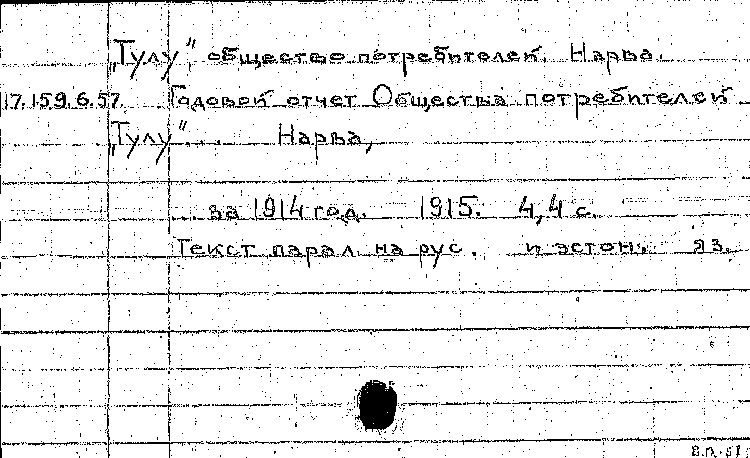 „Тулу", общество потребителей. Нарва.
17.159.6.57 Годовой отчет Общества потребителей
„Тулу"... Нарва,
... за 1914 год. 1915. 4,4 с.
Текст парал. на рус. и эстон. яз.